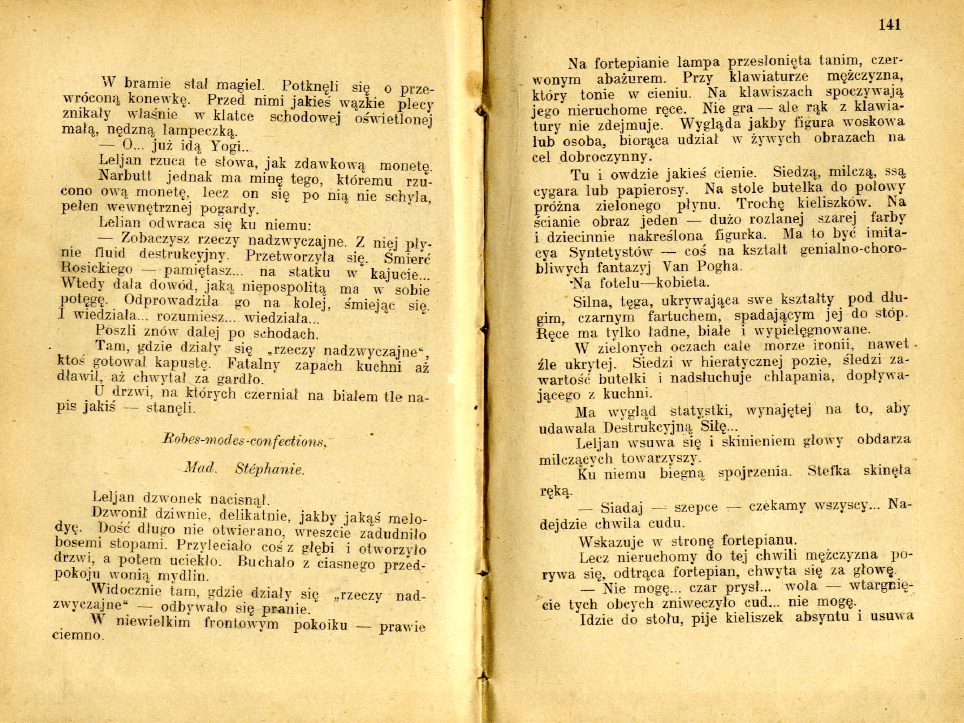 W bramie stał magiel. Potknęli się o prze-
wróconą konewkę. Przed nimi jakieś wązkie plecy
znikały właśnie w klatce schodowej oświetlonej
małą, nędzną lampeczką.
— O... już idą Yogi...
Leljan rzuca te słowa, jak zdawkową monetę.
Narbutt jednak ma minę tego, któremu rzu-
cono ową monetę, lecz on się po nią nie schyla,
pełen wewnętrznej pogardy.
Lelian odwraca się ku niemu:
— Zobaczysz rzeczy nadzwyczajne. Z niej pły-
nie fluid destrukcyjny. Przetworzyła się. Śmierć
Rosickiego — pamiętasz... na statku w kajucie...
Wtedy dała dowód, jaką niepospolitą ma w sobie
potęgę. Odprowadziła go na kolej, śmiejąc się.
I wiedziała... rozumiesz... wiedziała...
Poszli znów dalej po schodach.
Tam, gdzie działy się „rzeczy nadzwyczajne“,
ktoś gotował kapustę. Fatalny zapach kuchni aż
dławił, aż chwytał za gardło.
U drzwi, na których czerniał na białem tle na-
pis jakiś — stanęli.
Robes-modes-confections,
Mad. Stéphanie.
Leljan dzwonek nacisnął.
Dzwonił dziwnie, delikatnie, jakby jakąś melo-
dyę. Dość długo nie otwierano, wreszcie zadudniło
bosemi stopami. Przyleciało coś z głębi i otworzyło
drzwi, a potem uciekło. Buchało z ciasnego przed-
pokoju wonią mydlin.
Widocznie tam, gdzie działy się „rzeczy nad-
zwyczajne“ — odbywało się pranie.
W niewielkim frontowym pokoiku — prawie
ciemno.
141
Na fortepianie lampa przesłonięta tanim, czer-
wonym abażurem. Przy klawiaturze mężczyzna,
który tonie w cieniu. Na klawiszach spoczywają
jego nieruchome ręce. Nie gra — ale rąk z klawia-
tury nie zdejmuje. Wygląda jakby figura woskowa
lub osoba, biorąca udział w żywych obrazach na
cel dobroczynny.
Tu i owdzie jakieś cienie. Siedzą, milczą, ssą
cygara lub papierosy. Na stole butelka do połowy
próżna zielonego płynu. Trochę kieliszków. Na
ścianie obraz jeden — dużo rozlanej szarej farby
i dziecinnie nakreślona figurka. Ma to być imita-
cya Syntetystów — coś na kształt genialno-choro-
bliwych fantazyj Van Pogha.
Na fotelu—kobieta.
Silna, tęga, ukrywająca swe kształty pod dłu-
gim, czarnym fartuchem, spadającym jej do stóp.
Ręce ma tylko ładne, białe i wypielęgnowane.
W zielonych oczach całe morze ironii, nawet
źle ukrytej. Siedzi w hieratycznej pozie, śledzi za-
wartość butelki i nadsłuchuje chlapania, dopływa-
jącego z kuchni.
Ma wygląd statystki, wynajętej na to, aby
udawała Destrukcyjną Siłę...
Leljan wsuwa się i skinieniem głowy obdarza
milczących towarzyszy.
Ku niemu biegną spojrzenia. Stefka skinęła
ręką.
— Siadaj — szepce — czekamy wszyscy... Na-
dejdzie chwila cudu.
Wskazuje w stronę fortepianu.
Lecz nieruchomy do tej chwili mężczyzna po-
rywa się, odtrąca fortepian, chwyta się za głowę.
— Nie mogę... czar prysł... woła — wtargnię-
cie tych obcych zniweczyło cud... nie mogę.
Idzie do stołu, pije kieliszek absyntu i usuwa